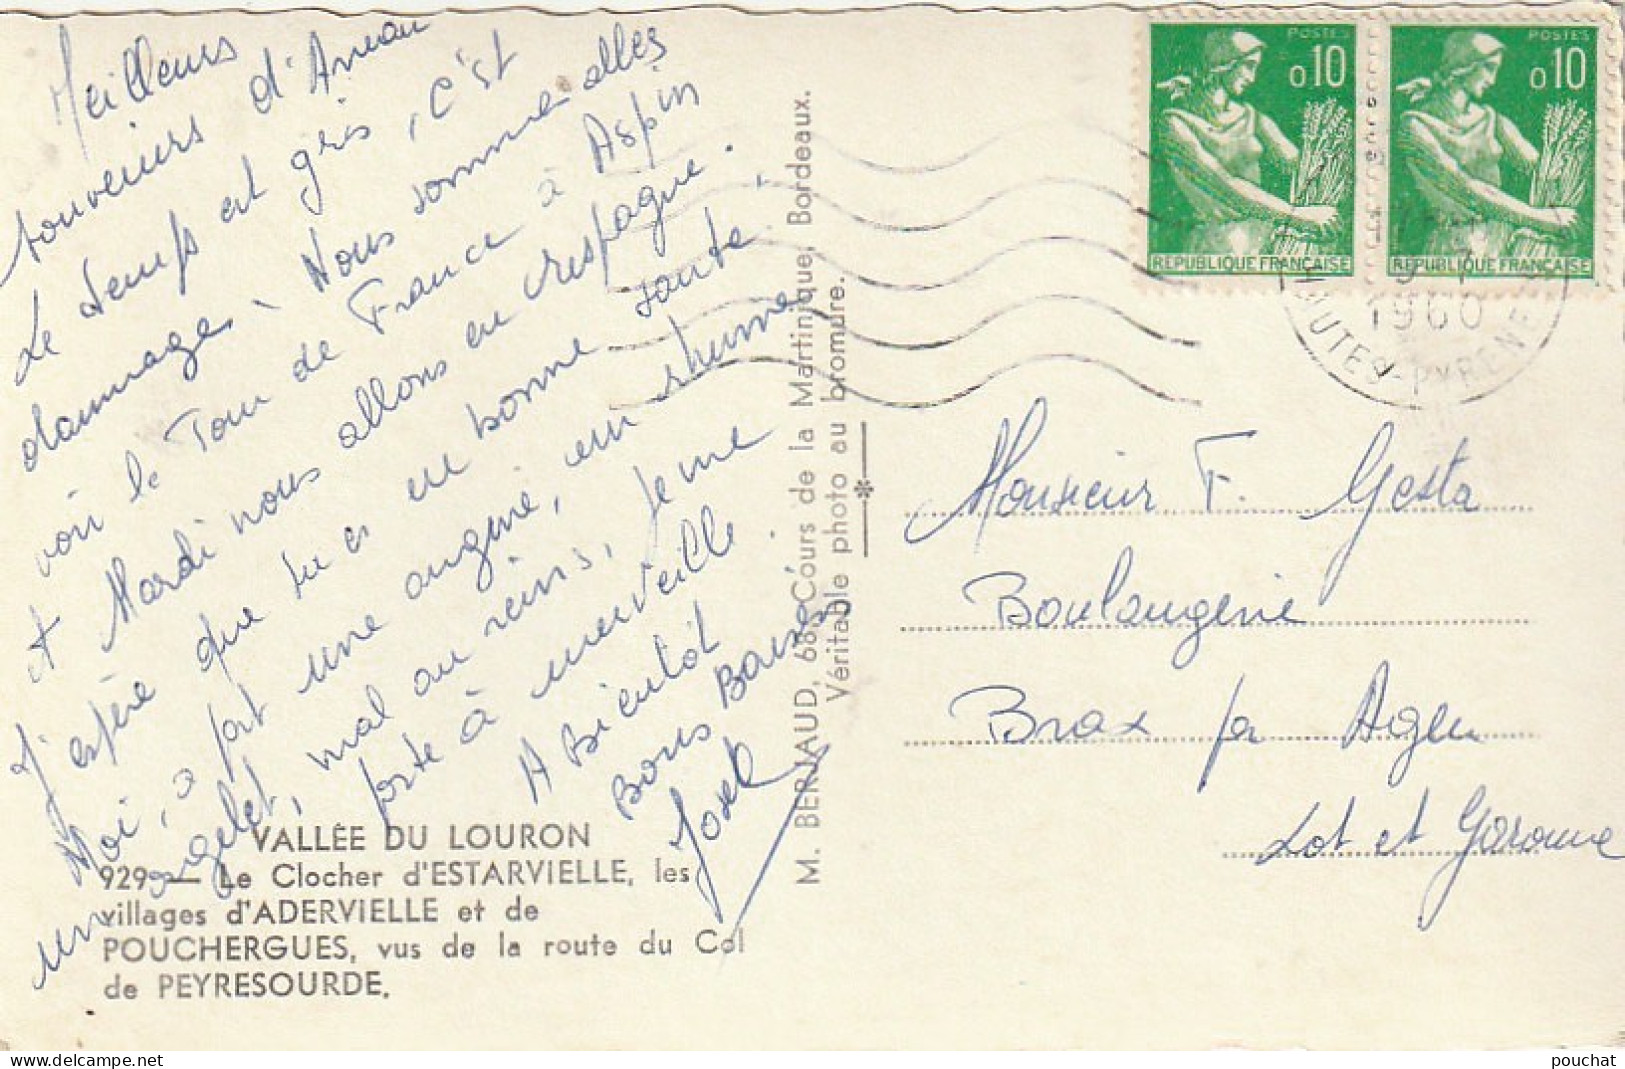 Meilleurs
souvenirs d'Arreau
Le temps est gris, c'est
dammage. Nous sommes allés
voir le Tour de France à Aspin
et Mardi nous allons en espagne.
J'espère que tu es en bonne santé,
Moi, à part une angine, un rhume
un orgelet, mal au reins, je me
porte à merveille.
A Bientôt
Bons Baisers
VALLÉE DU LOURON
929 — Le Clocher d'ESTARVIELLE, les
villages d'ADERVIELLE et de
POUCHERGUES, vus de la route du Col
de PEYRESOURDE.
M. BERJAUD, 68, Cours de la Martinique, Bordeaux.
Véritable photo au bromure.
POSTES
0,10
REPUBLIQUE FRANÇAISE
POSTES
0,10
REPUBLIQUE FRANÇAISE
1960
HAUTES-PYRENEES
Monsieur F. Gesta
Boulangerie
Brax par Agen
Lot et Garonne
pouchat
delcampe.net